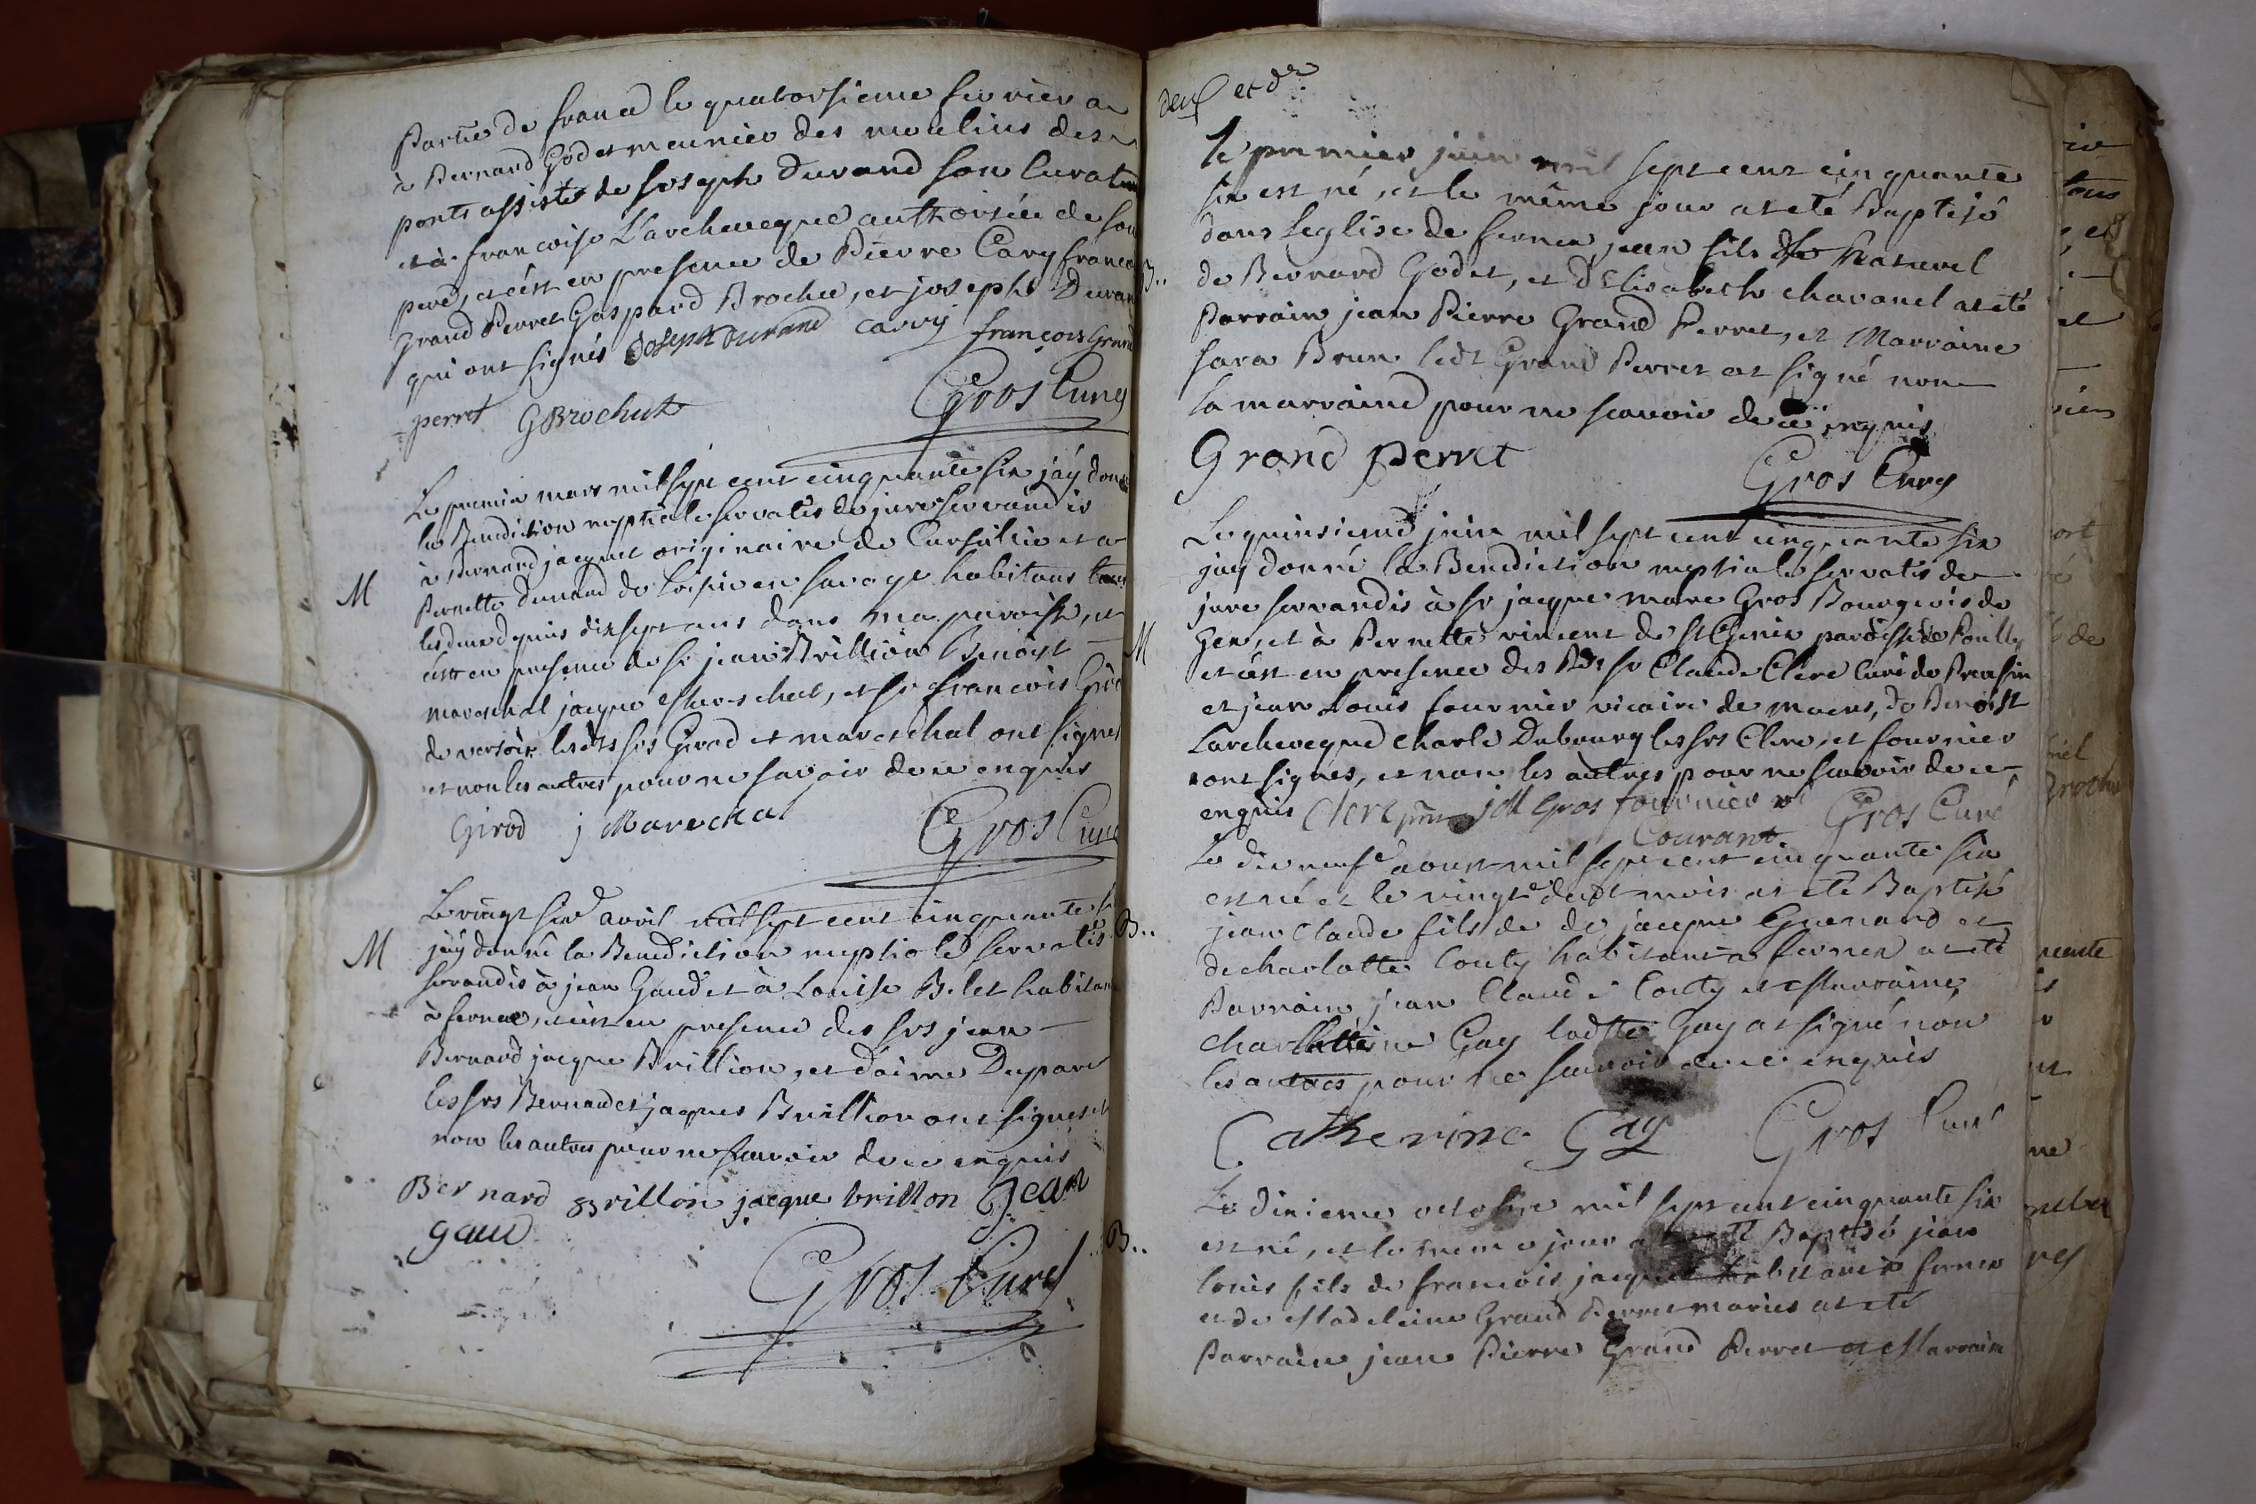 Partie de franc le quatorsieme fevrier a
à Bernard Godet meunier des moulins des
ponts assisté de Joseph Durand son Curateur
et à francoise L'archeveque authorisée de son
peré, et c'est en presence de Pierre Cary francois
Grand Perret Gaspard Brochu, et joseph Duran
qui ont signés Joseph durand carry françois Grand
perret GBrochut Gros Curé
Le premier mars mil sept cent cinquante six j'ay donné
la Benediction nuptiale servatis de jure servandis
à Bernard jacquet originaire de et a
M
Pernette Dunand de Loisin en Savoye habitans tous
les deux depuis dix sept ans dans ma paroisse, et
c'est en presence de sr jean Brillion Benoist
mareschal jacque Mareschal, et sr francois Giro
de versoix lesdts srs Girod et mareschal ont signés
et non les autres pour ne savoir de ce enquis
Girod j Marechal Gros Curé
Le vingt sixe avril mil sept cent cinquante s
M
jay donné la Benediction nuptiale servatis
servandis à jean Gaud et à Louise Belet habitans
à fernex, et c'est en presence des srs jean
Bernard jacque Brillion, et d'aimé Duparc
les srs Bernard et jaques Brillion ont signes et
non les autres pour ne scavoir de ce enquis
Bernard Brillon jacque brillon Jean
gaud
Gros Curé
deux et de
B..
Le premier juin mil sept cent cinquante
six est né, et le même jour at eté Baptisé
dans l'eglise de fernex jean fils naturel
de Bernard Godet, et d'Elisabeth chavanel at eté
Parrain jean Pierre Grand Perret, et Marraine
sara Brun ledt Grand Perret at signé non
la marraine pour ne scavoir de ce enquis
Grand perret Gros Curé
Le quinsieme juin mil sept cent cinquante six
jay donné la Benediction nuptiale servatis de
jure servandis à sr jacque marc Gros Bourgeois de
M
Gex, et à Pernette vincent de st Genix paroisse de Pouilly
et c'est en presence des Rds sr Claude Clerc Curé de Prevessin
et jean Louis fournier vicaire de moens, de Benoist
Larcheveque charle Dubourg les srs Clerc, et fournier
ont signés, et non les autres pour ne scavoir de ce
enquis Clerc jM Gros fournier v Gros Curé
Courant
Le dix neufe aoust mil sept cent cinquante six
est né et le vingte dudt mois at eté Baptisé
B..
jean Claude fils de de jacque Guenard et
de charlotte Couty habitans a fernex at eté
Parrain jean Claude Couty et Marraine
Gay ladtte Gay at signé non
les autres pour ne scavoir de ce enquis
Catherine Gay Gros Curé
Le dixieme octobre mil sept cent cinquante six
B..
est né, et le meme jour at eté Baptisé jean
louis fils de francois jacquet habitant à fernex
et de Madeleine Grand Perret mariés at eté
Parrain jean Pierre Grand Perret et Marraine